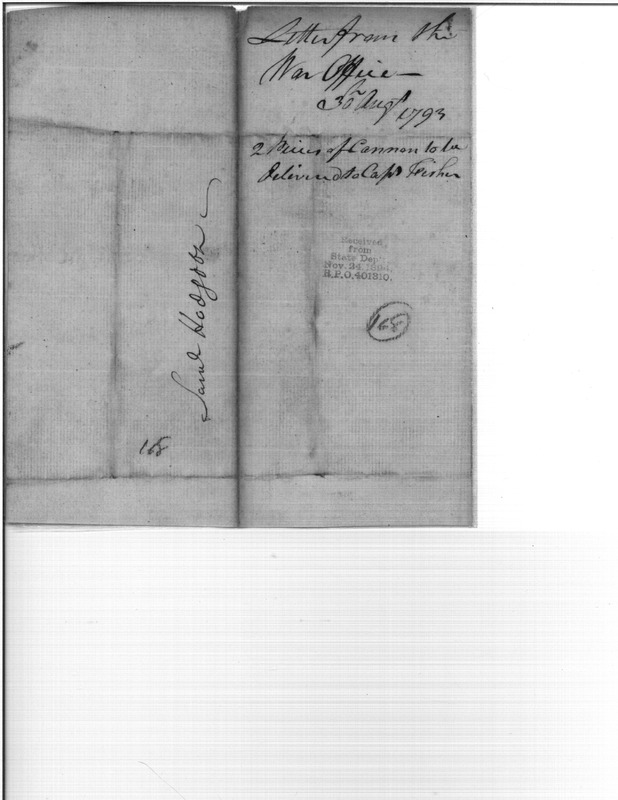 Letter from the
War Office —
30th Augt
1793
2 Pieces of Cannon to be
delivered to Capt Fisher
Received
from
State Dept.
Nov. 24, 1894,
R.P.O. 401310.
168
Saml Hodgdon
168